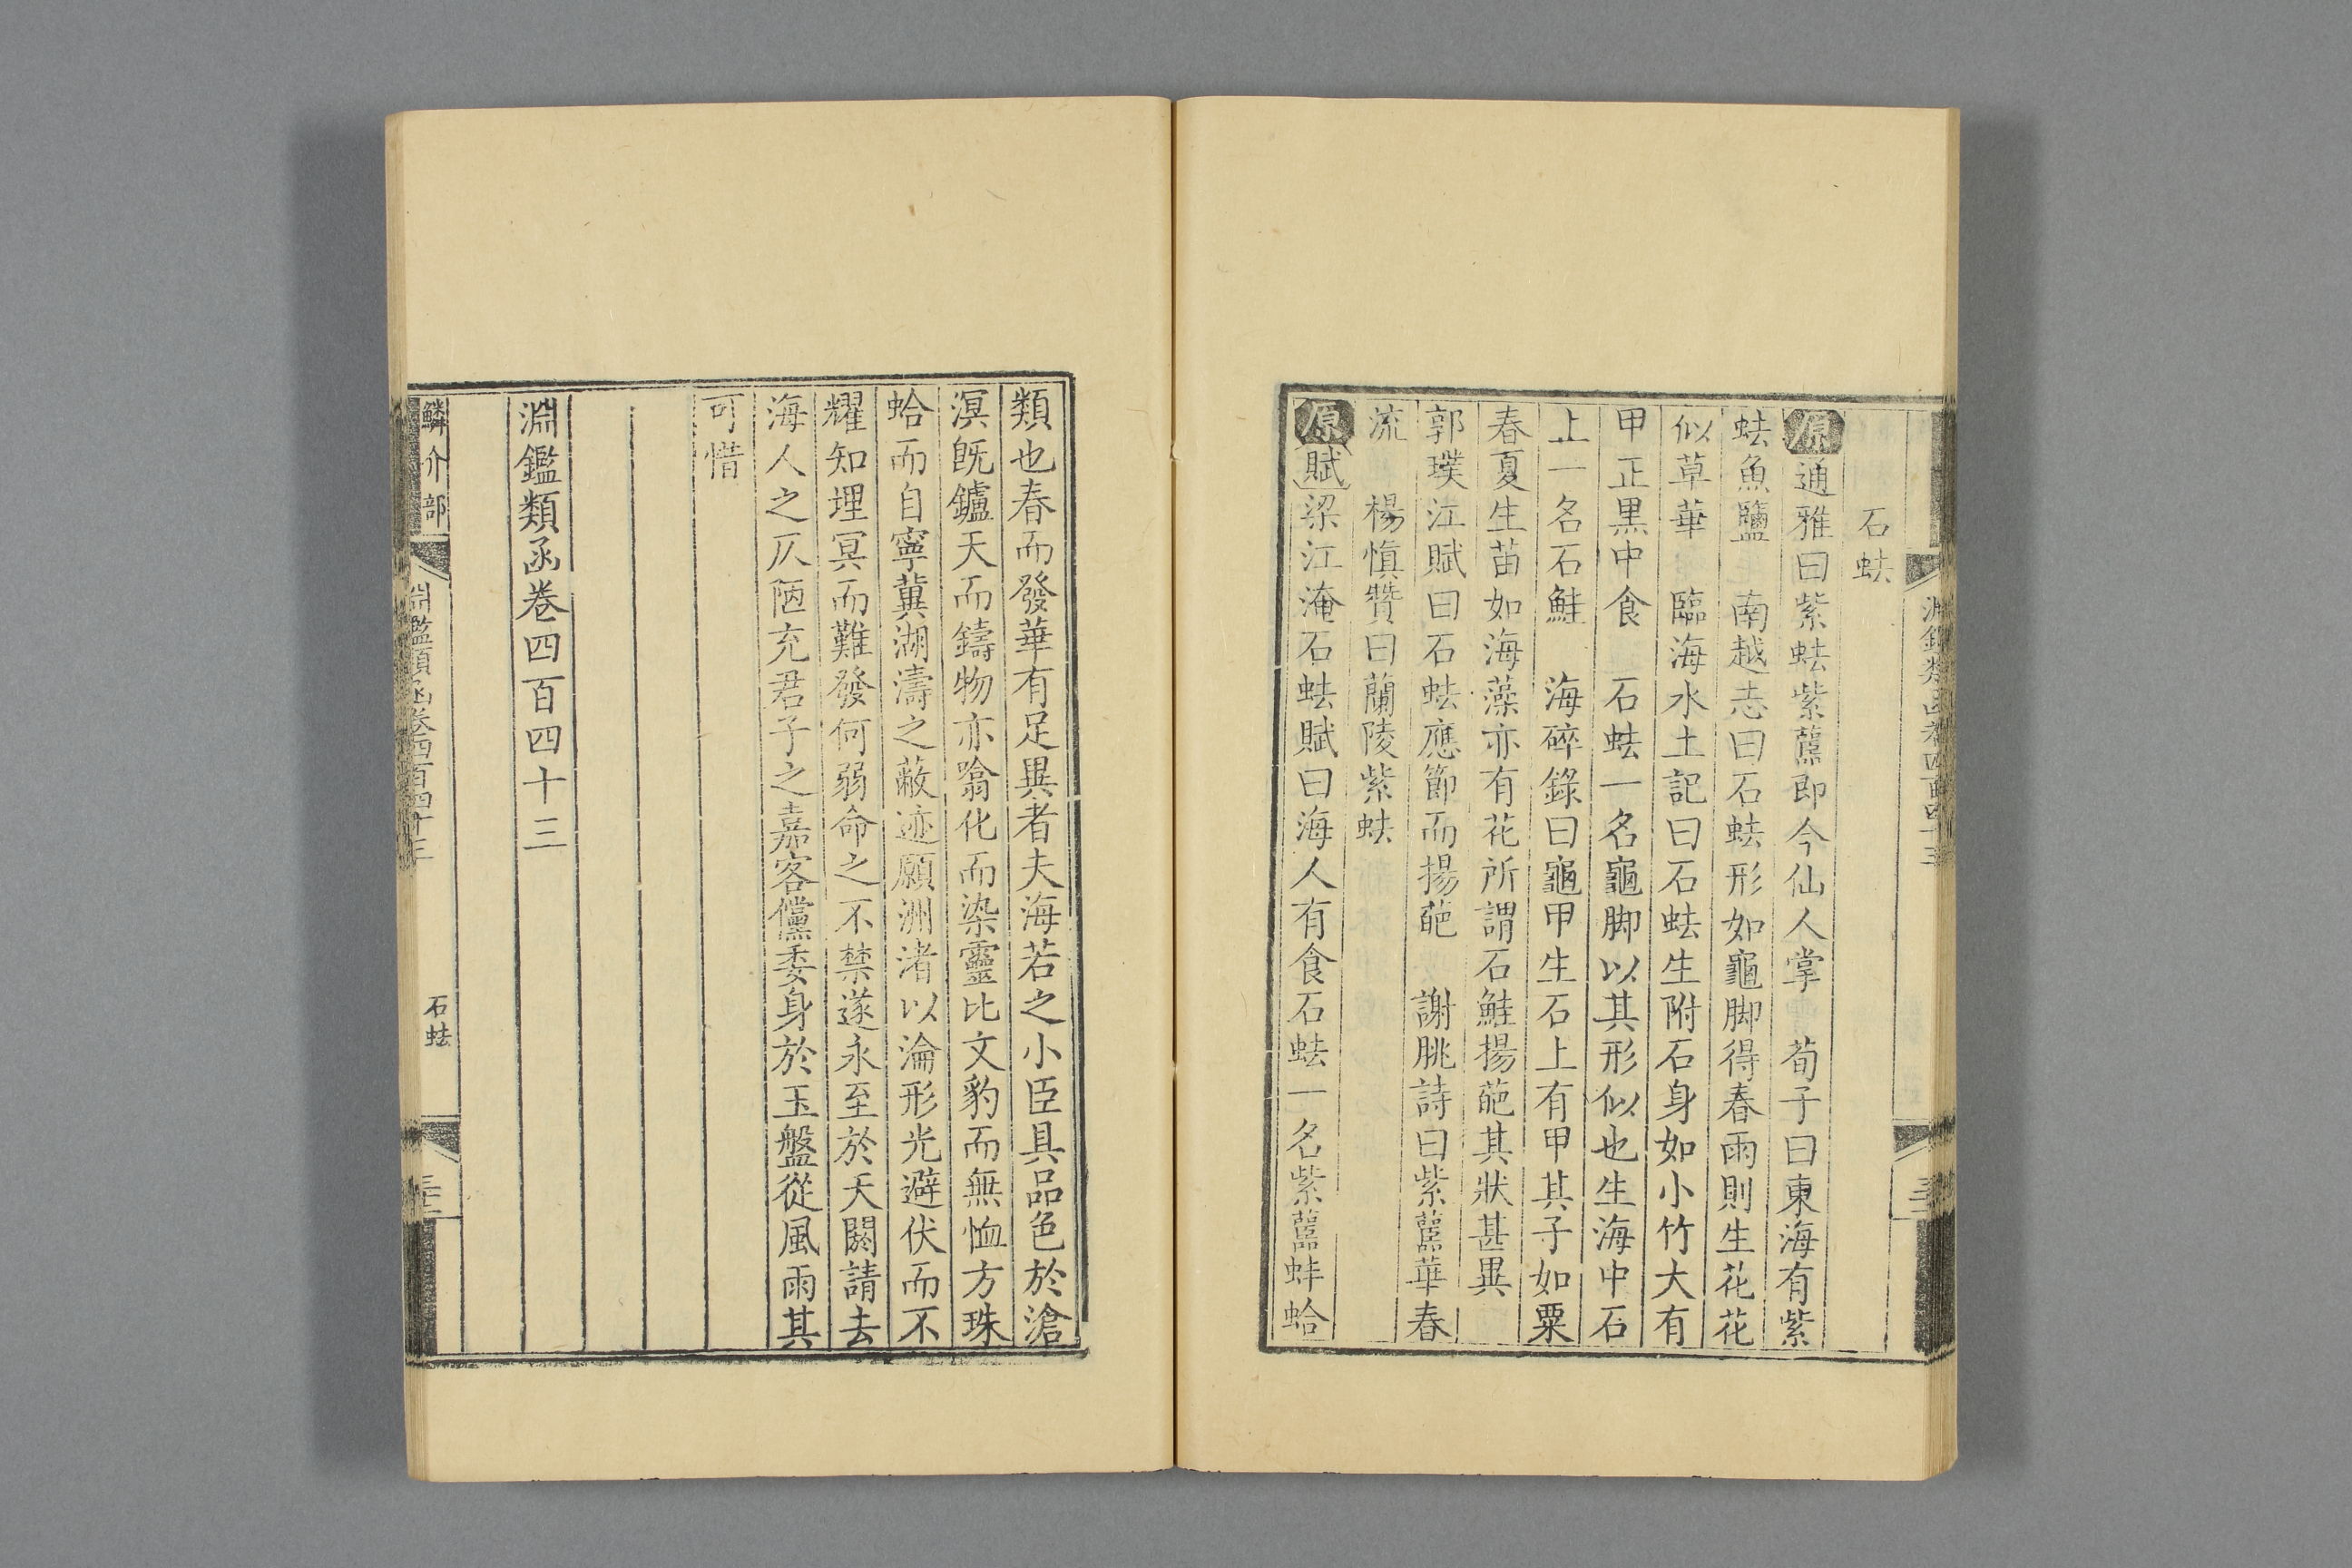 石蜐
原通雅曰紫蜐紫𧄔即今仙人掌 荀子曰東海有紫
蜐魚鹽 南越志曰石蜐形如龜脚得春雨則生花花
似草華 臨海水土記曰石蜐生附石身如小竹大有
甲正黑中食 石蜐一名龜脚以其形似也生海中石
上一名石鮭 海碎錄曰龜甲生石上有甲其子如粟
春夏生苗如海藻亦有花所謂石鮭揚葩其狀甚異
郭璞江賦曰石蜐應節而揚葩 謝朓詩曰紫𧄔華春
流 楊慎贊曰蘭陵紫蜐
原賦梁江淹石蜐賦曰海人有食石蜐一名紫𧄔蚌蛤
類也春而發華有足異者夫海若之小臣具品色於滄
溟既鑪天而鑄物亦翕化而染靈比文豹而無恤方珠
蛤而自寧冀湖濤之蔽迹願洲渚以淪形光避伏而不
耀知埋冥而難發何弱命之不禁遂永至於天闕請去
海人之仄陋充君子之嘉客儻委身於玉盤從風雨其
可惜
淵鑑類函卷四百四十三
鱗介部
淵鑑類函卷四百四十三
石蜐